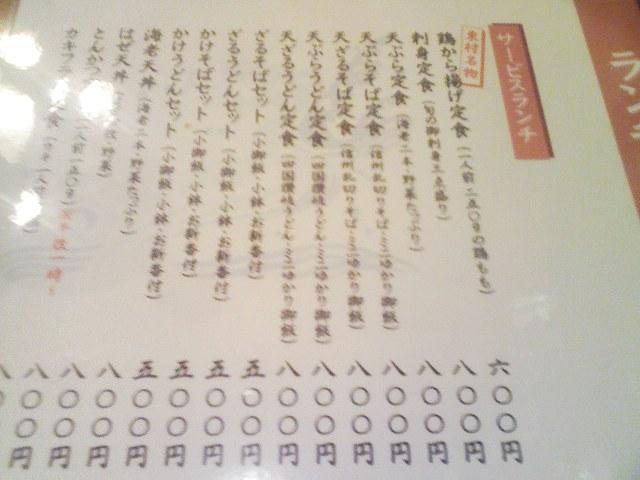 ラン
サービスランチ
東村名物
鶏から揚げ定食（一人前二五〇gの鶏もも） 六〇〇円
刺身定食（旬の御刺身三点盛り） 八〇〇円
天ぷら定食（海老二本・野菜たっぷり） 八〇〇円
天ぷらそば定食（信州乱切りそば・ミニゆかり御飯） 八〇〇円
天ざるそば定食（信州乱切りそば・ミニゆかり御飯） 八〇〇円
天ぷらうどん定食（四国讃岐うどん・ミニゆかり御飯） 八〇〇円
天ざるうどん定食（四国讃岐うどん・ミニゆかり御飯） 八〇〇円
ざるそばセット（小御飯・小鉢・お新香付） 五〇〇円
ざるうどんセット（小御飯・小鉢・お新香付） 五〇〇円
かけそばセット（小御飯・小鉢・お新香付） 五〇〇円
かけうどんセット（小御飯・小鉢・お新香付） 五〇〇円
海老天丼（海老二本・野菜たっぷり） 八〇〇円
はぜ天丼 野菜） 八〇〇円
とんかつ 一人前一五〇g） 八〇〇円
カキフ 定食 八〇〇円